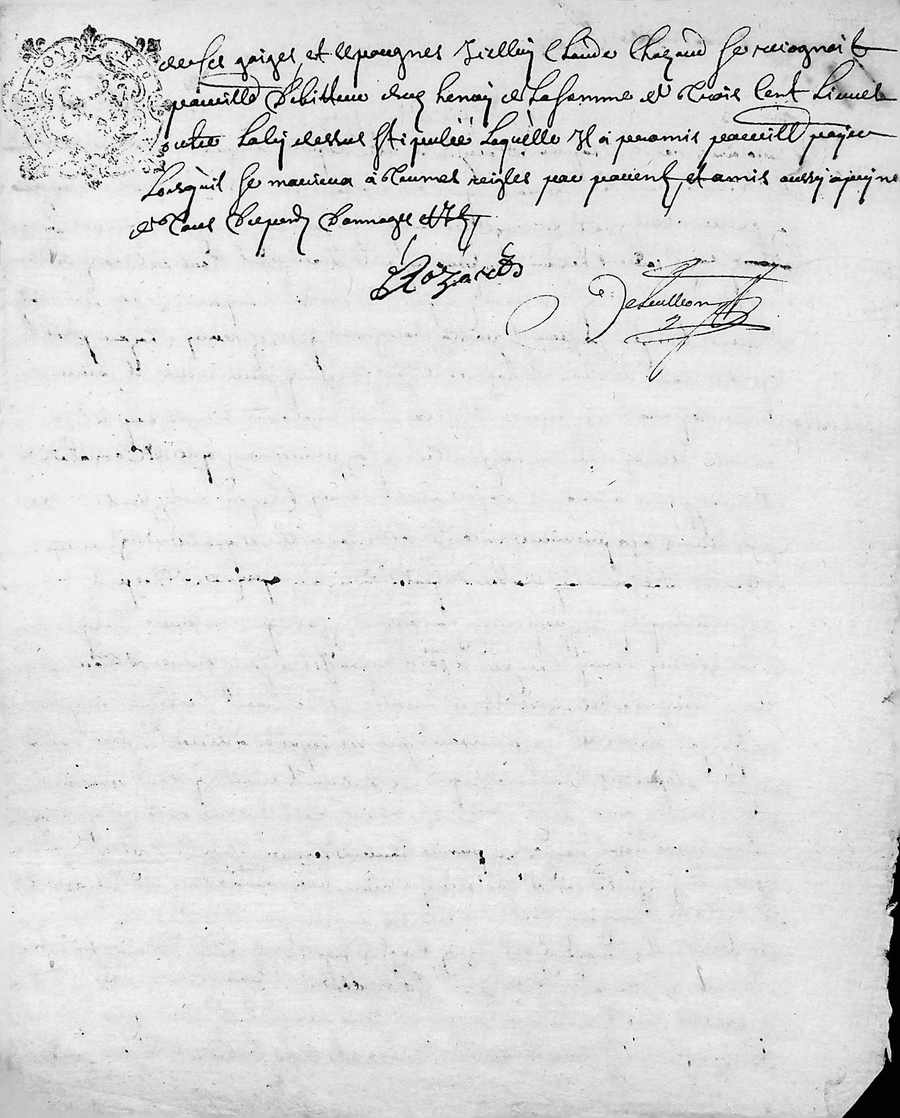 de ses gaiges et espargnes Icelluy Claude Chazaud se recognoit
pareillemt debitteur dud henoy de La somme de Trois Cent Livres
outre La cy dessus stipuleé Laquelle Il à promis pareillt payer
Lorsquil se mariera à Termes reigles par parents et amis aussy a peyne
de Tous despens dommages et
Rozared